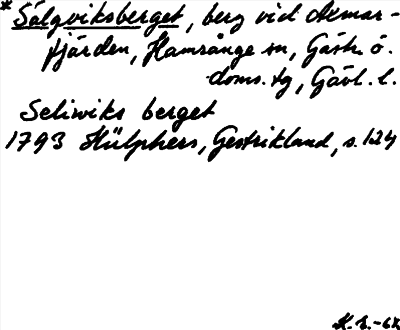 *Sälgviksberget, berg vid Axmar-
fjärden, Hamrånge sn, Gästr. ö.
doms. tg, Gävl. l.
Seliwiks berget
1793 Hülphers, Gestrikland, s. 124